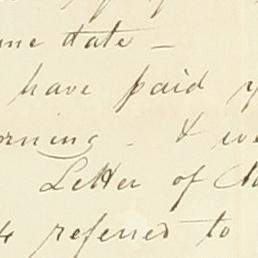 ame date -
have paid y
orning. & we
Letter of
referred to